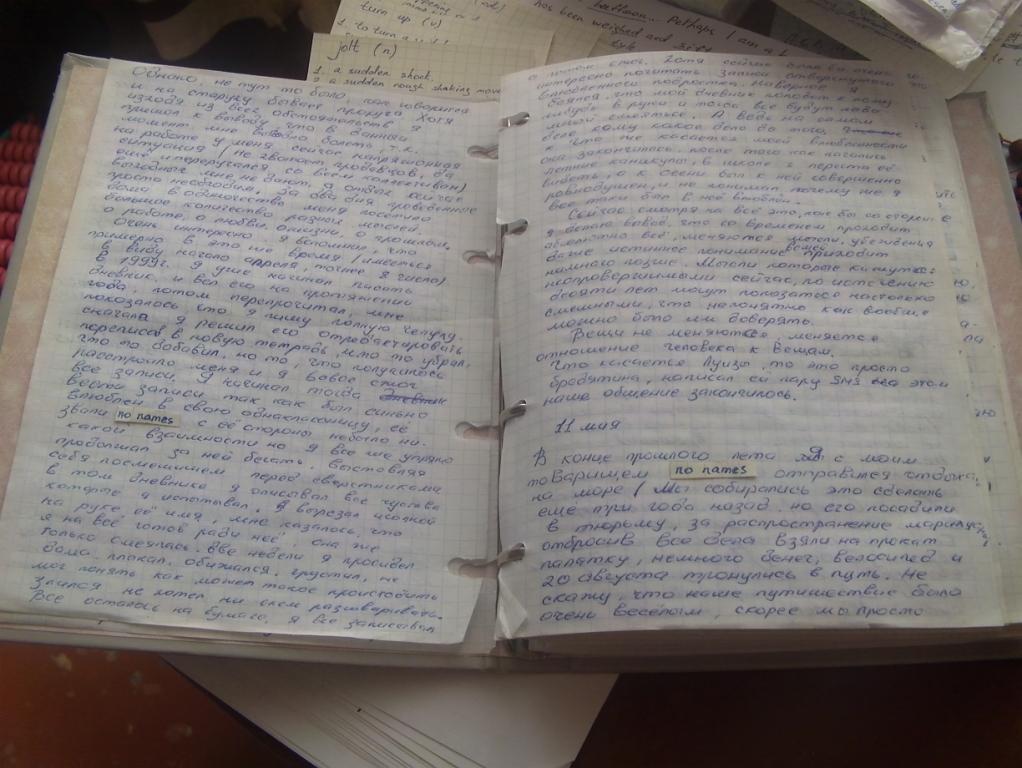 turn up (v)
1. to turn a
jolt (n)
1. a sudden shock.
2 a sudden rough shaking move
has been weighed and
Perhaps I am a
Однако, не тут то было, как говорится
и на старуху бывает проруха. Хотя
исходя из всех обстоятельств я
пришел к выводу, что в данный
момент мне болеть, т.к.
на работе у меня сейчас напряжонная
ситуация / не хватает продавцов, да
еще и переругался со всем коллективом)
выходных мне не дают, а отдых сейчас
просто необходим. За два дня проведенные
дома в одиночестве меня посетило
большое количество разных мыслей.
о работе, о любви, о жизни, о прошлом.
Очень интересно, я вспомнил, что
примерно в это же время / имеется
в виду начало апреля, точнее 8 числа)
В 1999г. я уже начинал писать
дневник и вел его на протяжении
года, потом перепрочитал, мне
показалось, что я пишу полную чепуху.
сначала я решил его отредактировать
переписав в новую тетрадь, что то убрал,
что то добавил, но то, что получилось
расстроило меня и я вовсе сжег
все записи. Я начинал тогда
вести записи, так как был сильно
влюблен в свою одноклассницу, её
звали no names с её стороны небыло ни
какой взаимности но я все же упрямо
продолжал за ней бегать, выставляя
себя посмешищем перед сверстниками
в том дневнике я описывал все чувства
которые я испытывал. Я вырезал иголкой
на руке её имя, мне казалось, что
я на всё готов ради неё, она же
только смеялась. Две недели я просидел
дома плакал, обижался, грустил, не
мог понять как может такое происходить
злился не хотел ни с кем разговаривать.
Все осталось на бумаге, я все записывал
а потом сжег. Хотя сейчас было бы очень
интересно почитать записи отвергнутого
влюбленного подростка. Наверное я
боялся, что мой дневник попадет к кому
нибудь в руки и тогда все будут надо
мной смеяться. А ведь на самом
деле кому какое дело до того,
Что же касается моей влюбленности
она закончилась после того как настали
летние каникулы, в школе я перестал её
видеть, а к осени был к ней совершенно
равнодушен, и не понимал, почему же я
все таки был в неё влюблён.
Сейчас смотря на всё это, как бы со стороны
я делаю вывод, что со временем проходит
абсолютно всё, меняются взгляды, убеждения
даже истинное понимание вещей приходит
намного позже. Мысли которые кажутся
неопровержимыми сейчас, по истечению
десяти лет могут показаться настолько
смешными, что непонятно как вообще
можно было им доверять.
Вещи не меняются, меняется
отношение человека к вещам.
Что касается Луизы, то это просто
бредятина, написал ей пару SMS на этом
наше общение закончилось.
11 мая
В конце прошлого лета я с моим
товарищем no names отправился отдыхать
на море / Мы собирались это сделать
еще три года назад. но его посадили
в тюрьму, за распространение марихуаны
отбросив все дела взяли на прокат
палатку, немного денег, велосипед и
20 августа тронулись в путь. Не
скажу, что наше путишествие было
очень весёлым, скорее мы просто